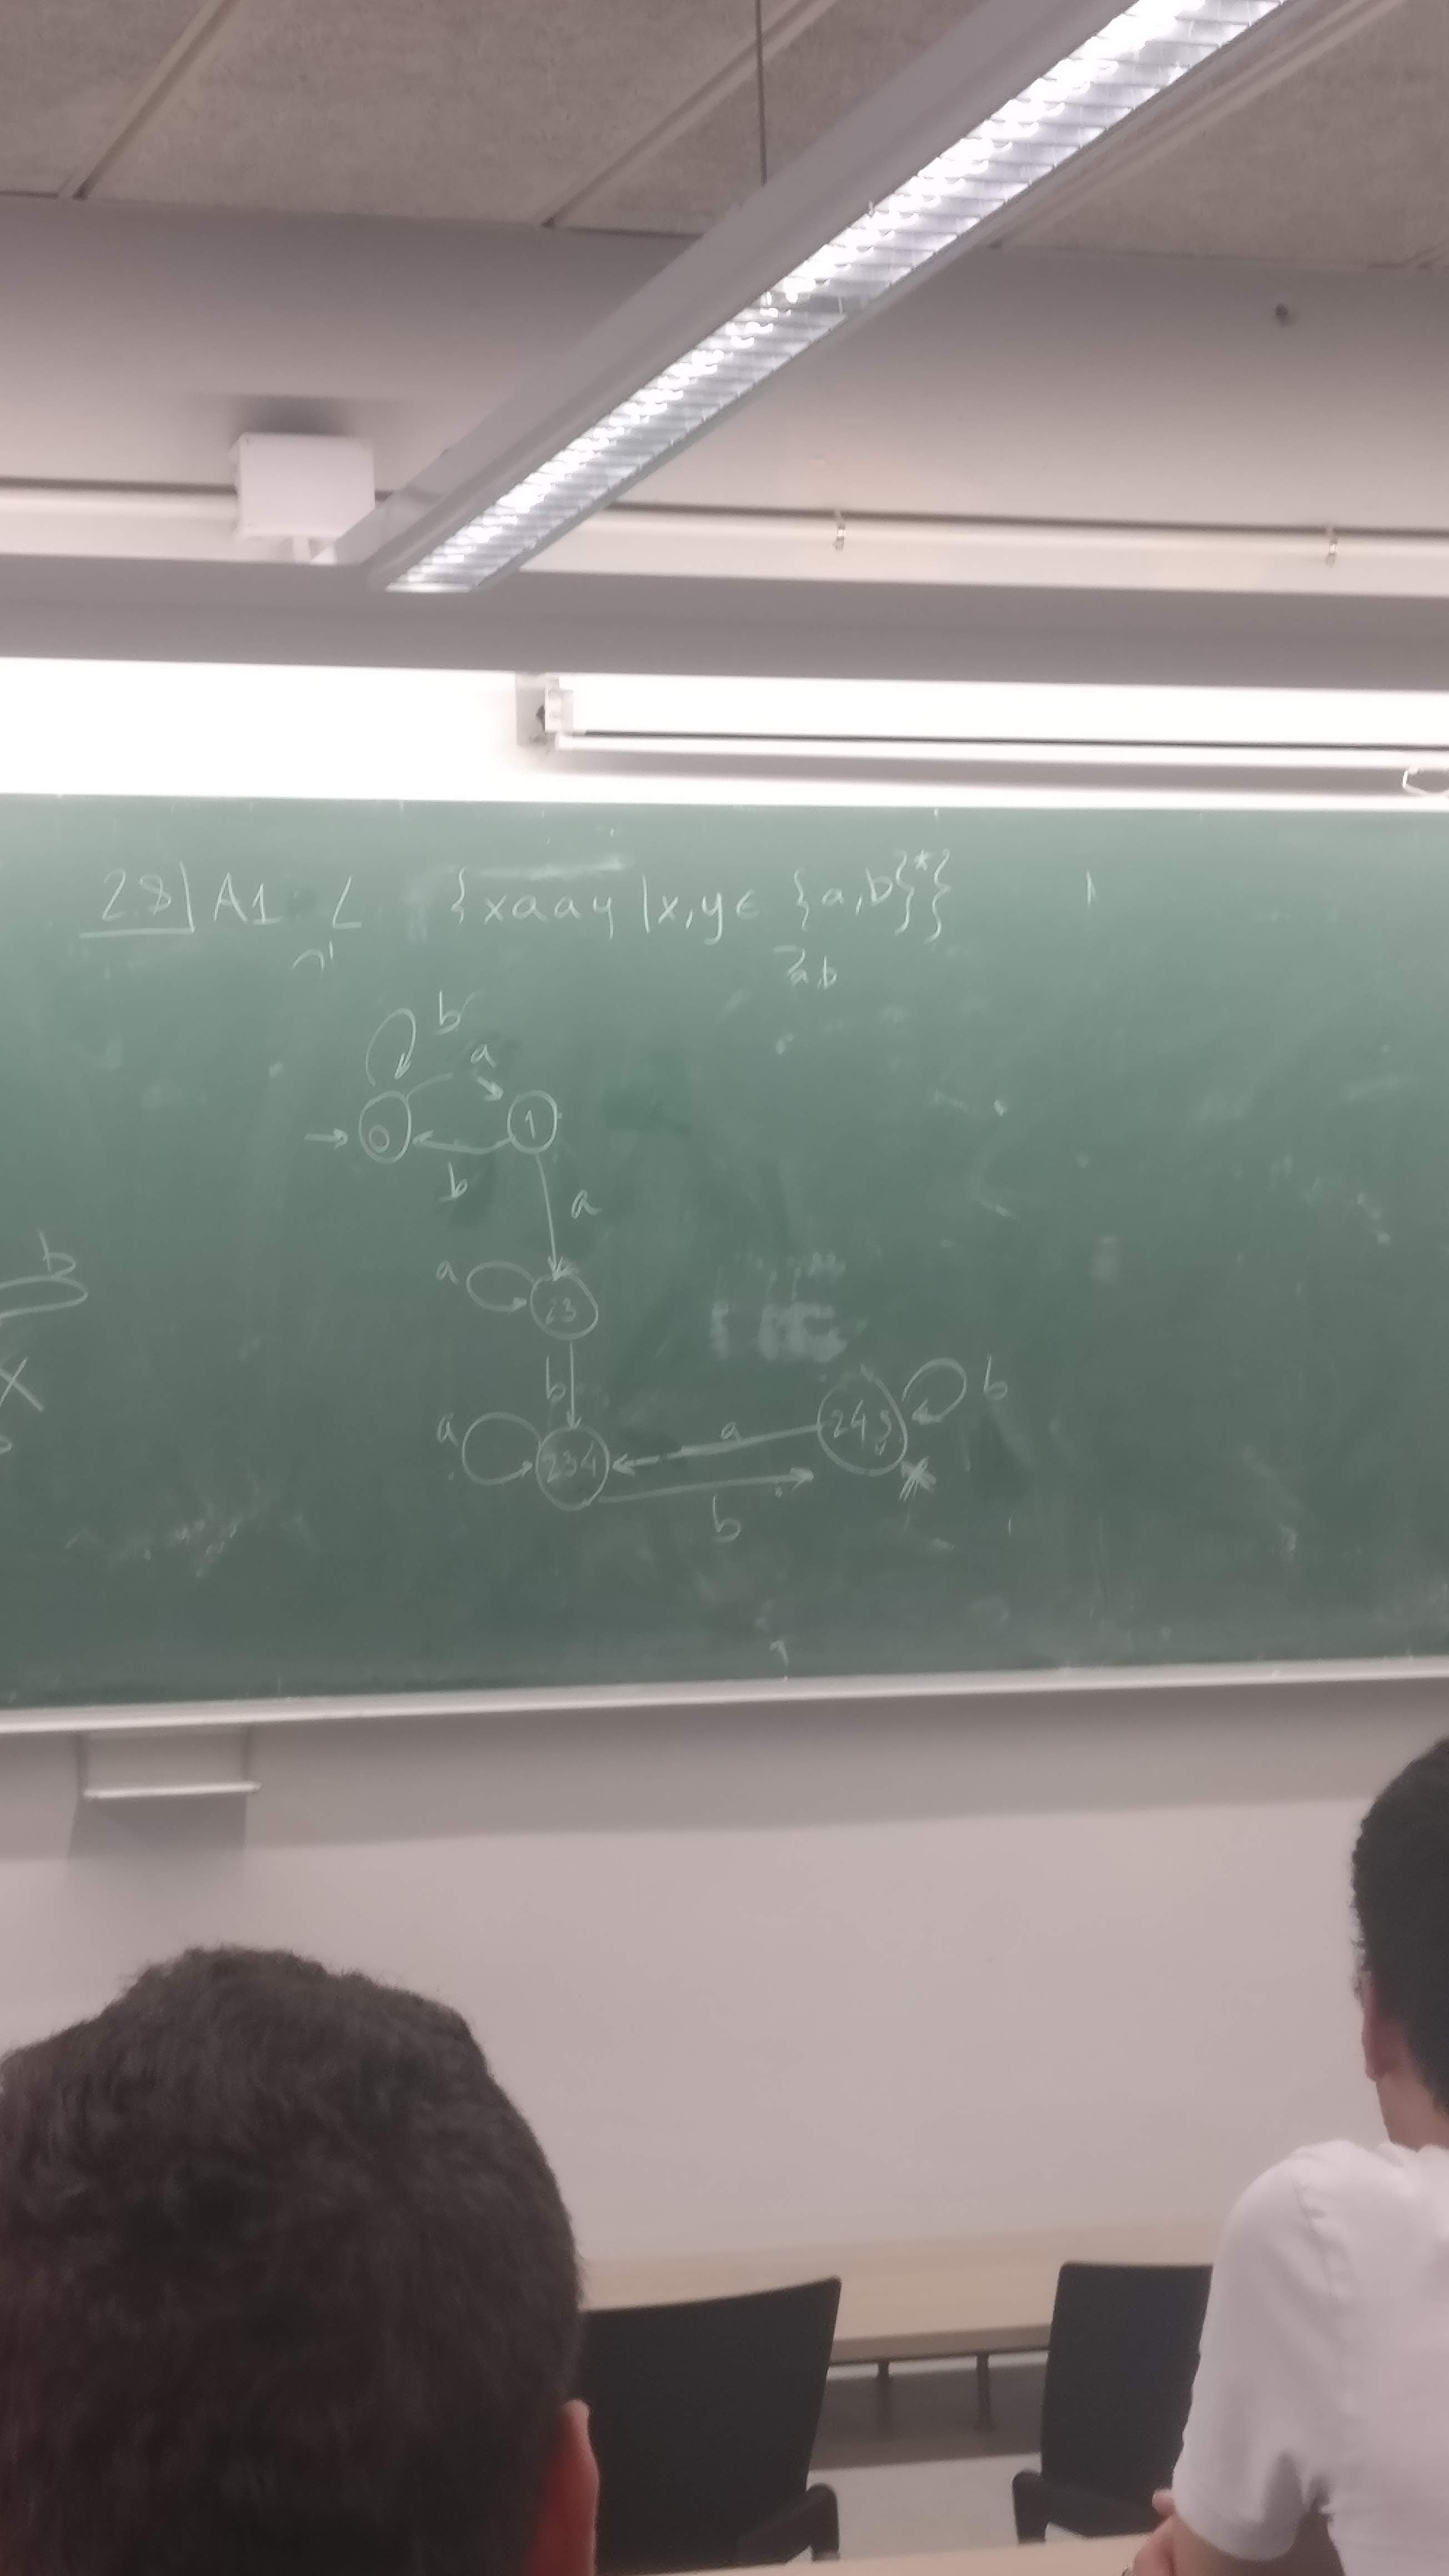 2.8| A1 L {xaay | x,y ∈ {a,b}*}
a,b
b
a
0
1
b
a
b
a
23
b
b
a
234
a
245
b